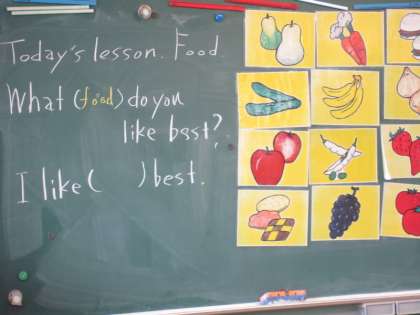 Today's lesson. Food.
What (food) do you
like best?
I like (    ) best.